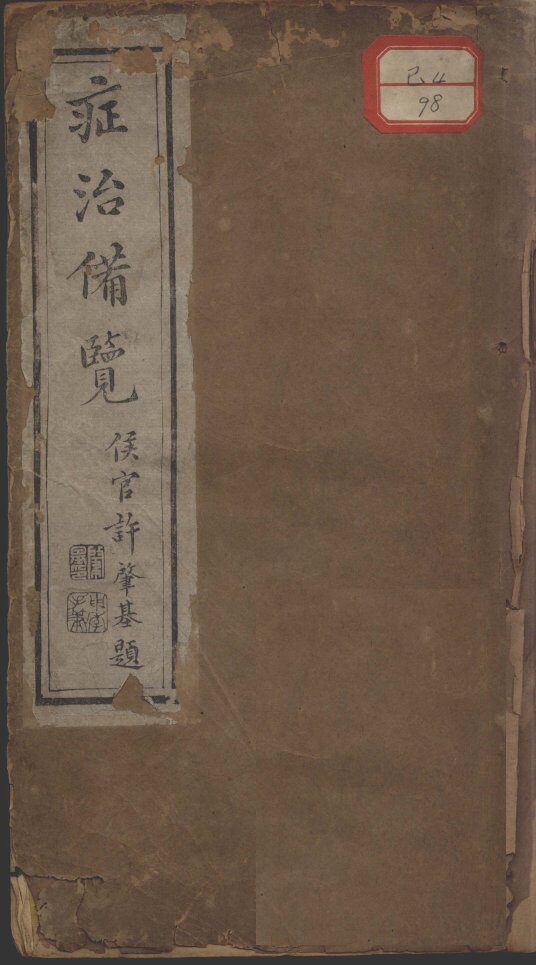 症治備覽
侯官許肇基題
己4
98